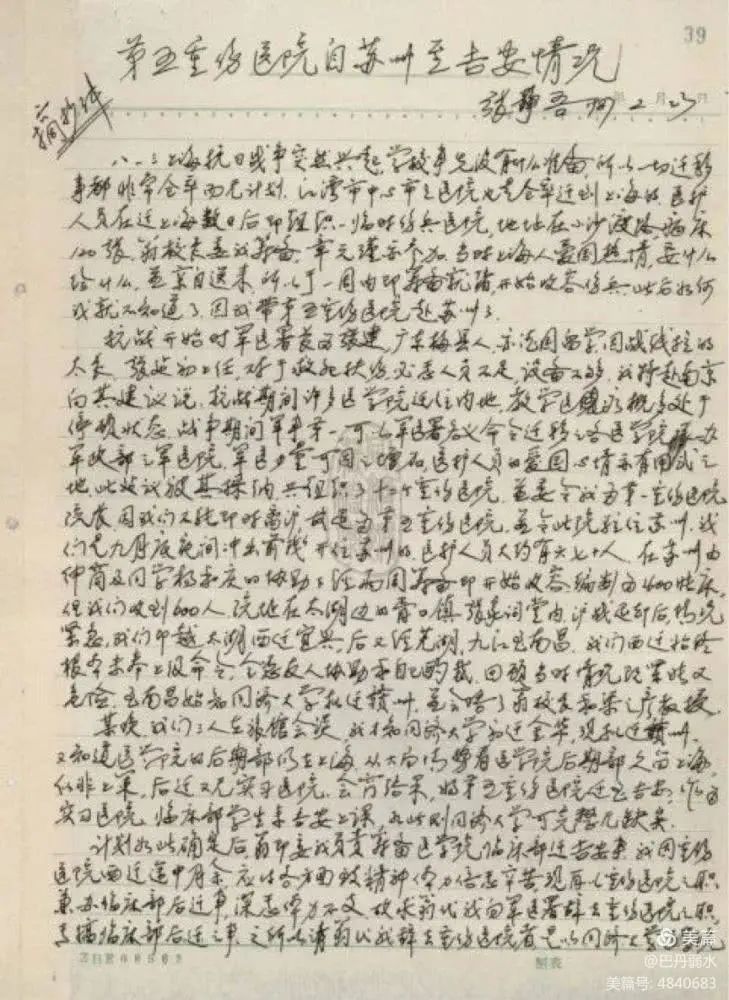 39
第五重伤医院自苏州至吉安情况
张静吾
年 2月23日
摘抄件
八一三上海抗日战争突然兴起,学校事先没有什么准备,所以一切迁移
事都非常仓卒而无计划。江湾市中心市立医院也是仓卒迁到上海的,医护
人员在迁上海数日后即组织一临时伤兵医院,地址在小沙渡路病床
120张,翁校长委我筹备,章元瑾亦参加,当时上海人爱国热情,要什么
给什么,并亲自送来,所以于一周内即筹备就绪,开始收容伤兵,此后如何
我就不知道了,因我带第五重伤医院赴苏州了。
抗战开始时军医署长为张建,广东梅县人,亦德国留学,因战线拉的
太长,张建初上任,对于救死扶伤必感人员不足,设备不够,我特赴南京
向其建议说,抗战期间许多医学院迁往内地,教学医院亦概多处于
停顿状态,战争期间军事第一,可以军医署名义命令迁移之各医学院
军政部之军医院,军医力量可因之增加,医护人员的爱国心情亦有用武之
地,此建议被其采纳,共组织了十二个重伤医院,并委令我为第一重伤医院
院长,因我们不能即时离沪,故是为第五重伤医院,并令此院驻住苏州,我
们是九月底夜间冲出前线,开往苏州的,医护人员大约有六七十人,在苏州由
仲简及同学杨 的协助,经两周筹备即开始收容,编制为400床,
但我们收到600人,院址在太湖边的胥口镇,张家祠堂内,沪战退却后,情况
紧急,我们即越太湖西迁宜兴,后又经芜湖,九江至南昌,我们西迁始终
根本未奉上级命令,全 友人协助和自己的 ,回顾当时情况既紧张又
危险,至南昌始知同济大学拟迁赣州,并会晤了翁校长和梁之彦教授。
某晚,我们三人在旅馆会谈,我才知同济大学初迁金华,现拟迁赣州,
又知道医学院的后期部仍在上海,从大局情势看医学院后期部久留上海,
似非上策,后迁又无实习医院,会商结果,将第五重伤医院迁至吉安,作为
实习医院,临床部学生来吉安上课,如此则同济大学可完整无缺矣。
计划如此确定后,翁即委我负责筹备医学院临床部迁吉安事,我因重伤
医院西迁途中月余,应付各方面致精神体力倍感辛苦,现再以重伤医院之职
兼办临床部后迁事,深感体力不支,故求翁代我向军医署辞去重伤医院之职,
专搞临床部后迁之事,之所以请翁代我辞去重伤医院者是以同济
美篇
@巴丹弱水
美篇号: 4840683